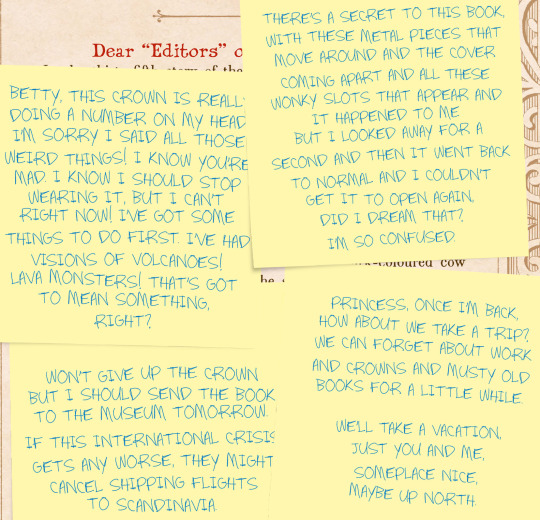 Dear “Editors” o
THERE'S A SECRET TO THIS BOOK,
WITH THESE METAL PIECES THAT
MOVE AROUND AND THE COVER
COMING APART AND ALL THESE
WONKY SLOTS THAT APPEAR AND
IT HAPPENED TO ME
BUT I LOOKED AWAY FOR A
SECOND AND THEN IT WENT BACK
TO NORMAL AND I COULDN'T
GET IT TO OPEN AGAIN,
DID I DREAM THAT?
I'M SO CONFUSED.
BETTY, THIS CROWN IS REALLY
DOING A NUMBER ON MY HEAD
I'M SORRY I SAID ALL THOSE
WEIRD THINGS! I KNOW YOU'RE
MAD. I KNOW I SHOULD STOP
WEARING IT, BUT I CAN'T
RIGHT NOW! I'VE GOT SOME
THINGS TO DO FIRST. I'VE HAD
VISIONS OF VOLCANOES!
LAVA MONSTERS! THAT'S GOT
TO MEAN SOMETHING,
RIGHT?
-coloured cow
he
WON'T GIVE UP THE CROWN
BUT I SHOULD SEND THE BOOK
TO THE MUSEUM TOMORROW.
IF THIS INTERNATIONAL CRISIS
GETS ANY WORSE, THEY MIGHT
CANCEL SHIPPING FLIGHTS
TO SCANDINAVIA.
PRINCESS, ONCE I'M BACK,
HOW ABOUT WE TAKE A TRIP?
WE CAN FORGET ABOUT WORK
AND CROWNS AND MUSTY OLD
BOOKS FOR A LITTLE WHILE.
WE'LL TAKE A VACATION,
JUST YOU AND ME,
SOMEPLACE NICE,
MAYBE UP NORTH.